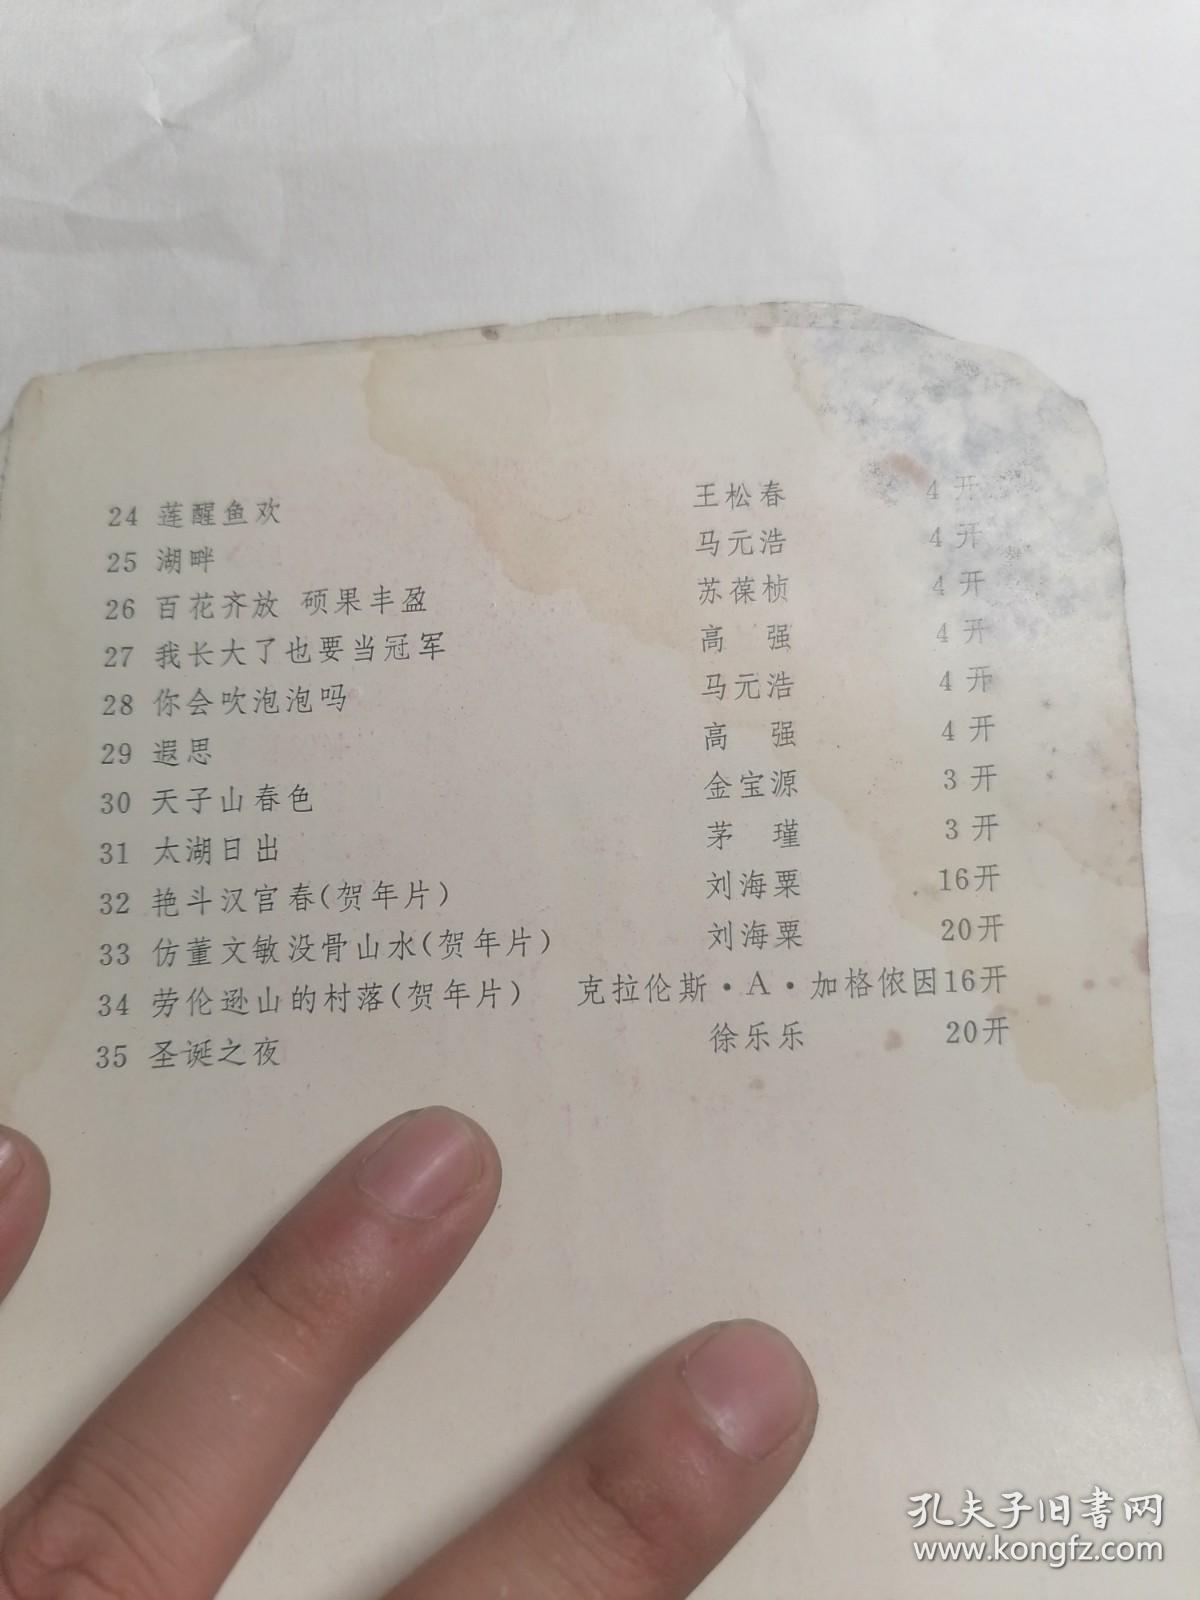 24 莲醒鱼欢 王松春 4开
25 湖畔 马元浩 4开
26 百花齐放 硕果丰盈 苏葆桢 4开
27 我长大了也要当冠军 高 强 4开
28 你会吹泡泡吗 马元浩 4开
29 遐思 高 强 4开
30 天子山春色 金宝源 3开
31 太湖日出 茅 瑾 3开
32 艳斗汉宫春(贺年片) 刘海粟 16开
33 仿董文敏没骨山水(贺年片) 刘海粟 20开
34 劳伦逊山的村落(贺年片) 克拉伦斯·A·加格侬因16开
35 圣诞之夜 徐乐乐 20开
孔夫子旧书网
www.kongfz.com